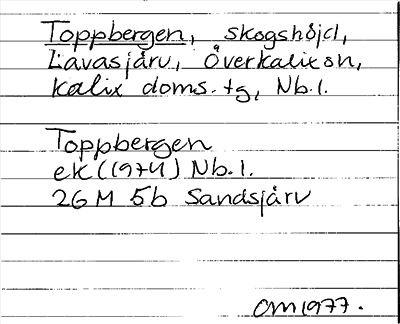 Toppbergen, skogshöjd,
Lavasjärv, Överkalix sn,
Kalix doms. tg, Nb. l.
Toppbergen
ek (1974) Nb. l.
26 M 5b Sandsjärv
OM 1977.